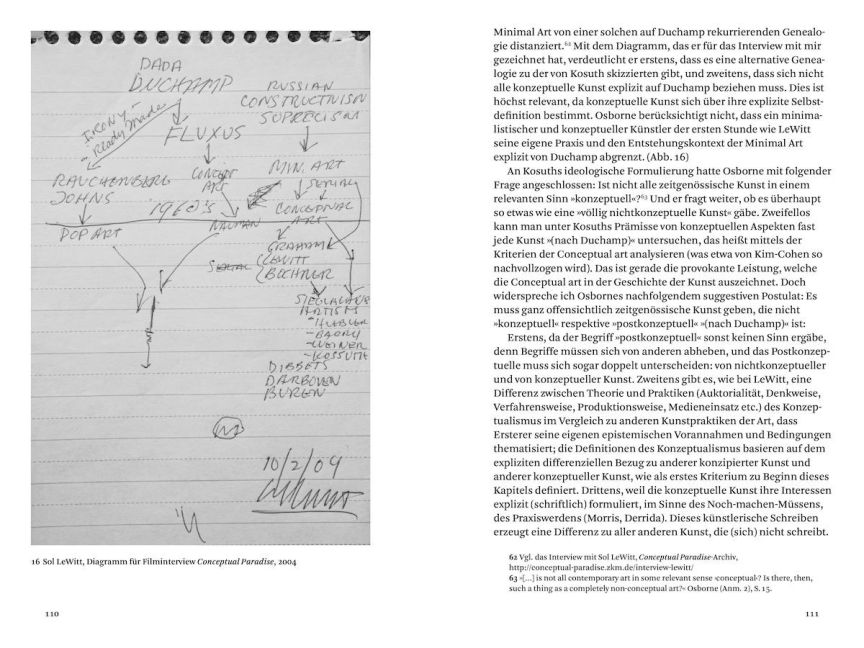 DADA
DUCHAMP
RUSSIAN
CONSTRUCTIVISM
SUPRECISM
IRONY -
- Ready made
FLUXUS
RAUCHENBERG
JOHNS
CONCEPT
ART
MIN. ART
SERIAL
1960'S
CONCEPTUAL
ART
POP ART
NAUMAN
GRAHAM
LEWITT
BOCHNER
SIEGLAUB'S
ARTISTS
- HUEBLER
- BARRY
- WEINER
- KOSSUTH
DIBBETS
DARBOVEN
BUREN
10/2/04
16 Sol LeWitt, Diagramm für Filminterview Conceptual Paradise, 2004
110
Minimal Art von einer solchen auf Duchamp rekurrierenden Genealo-
gie distanziert.62 Mit dem Diagramm, das er für das Interview mit mir
gezeichnet hat, verdeutlicht er erstens, dass es eine alternative Genea-
logie zu der von Kosuth skizzierten gibt, und zweitens, dass sich nicht
alle konzeptuelle Kunst explizit auf Duchamp beziehen muss. Dies ist
höchst relevant, da konzeptuelle Kunst sich über ihre explizite Selbst-
definition bestimmt. Osborne berücksichtigt nicht, dass ein minima-
listischer und konzeptueller Künstler der ersten Stunde wie LeWitt
seine eigene Praxis und den Entstehungskontext der Minimal Art
explizit von Duchamp abgrenzt. (Abb. 16)
An Kosuths ideologische Formulierung hatte Osborne mit folgender
Frage angeschlossen: Ist nicht alle zeitgenössische Kunst in einem
relevanten Sinn »konzeptuell«?63 Und er fragt weiter, ob es überhaupt
so etwas wie eine »völlig nichtkonzeptuelle Kunst« gäbe. Zweifellos
kann man unter Kosuths Prämisse von konzeptuellen Aspekten fast
jede Kunst »(nach Duchamp)« untersuchen, das heißt mittels der
Kriterien der Conceptual art analysieren (was etwa von Kim-Cohen so
nachvollzogen wird). Das ist gerade die provokante Leistung, welche
die Conceptual art in der Geschichte der Kunst auszeichnet. Doch
widerspreche ich Osbornes nachfolgendem suggestiven Postulat: Es
muss ganz offensichtlich zeitgenössische Kunst geben, die nicht
»konzeptuell« respektive »postkonzeptuell« »(nach Duchamp)« ist:
Erstens, da der Begriff »postkonzeptuell« sonst keinen Sinn ergäbe,
denn Begriffe müssen sich von anderen abheben, und das Postkonzep-
tuelle muss sich sogar doppelt unterscheiden: von nichtkonzeptueller
und von konzeptueller Kunst. Zweitens gibt es, wie bei LeWitt, eine
Differenz zwischen Theorie und Praktiken (Auktorialität, Denkweise,
Verfahrensweise, Produktionsweise, Medieneinsatz etc.) des Konzep-
tualismus im Vergleich zu anderen Kunstpraktiken der Art, dass
Ersterer seine eigenen epistemischen Vorannahmen und Bedingungen
thematisiert; die Definitionen des Konzeptualismus basieren auf dem
expliziten differenziellen Bezug zu anderer konzipierter Kunst und
anderer konzeptueller Kunst, wie als erstes Kriterium zu Beginn dieses
Kapitels definiert. Drittens, weil die konzeptuelle Kunst ihre Interessen
explizit (schriftlich) formuliert, im Sinne des Noch-machen-Müssens,
des Praxiswerdens (Morris, Derrida). Dieses künstlerische Schreiben
erzeugt eine Differenz zu aller anderen Kunst, die (sich) nicht schreibt.
62 Vgl. das Interview mit Sol LeWitt, Conceptual Paradise-Archiv,
http://conceptual-paradise.zkm.de/interview-lewitt/
63 »[...] is not all contemporary art in some relevant sense ›conceptual‹? Is there, then,
such a thing as a completely non-conceptual art?« Osborne (Anm. 2), S. 15.
111